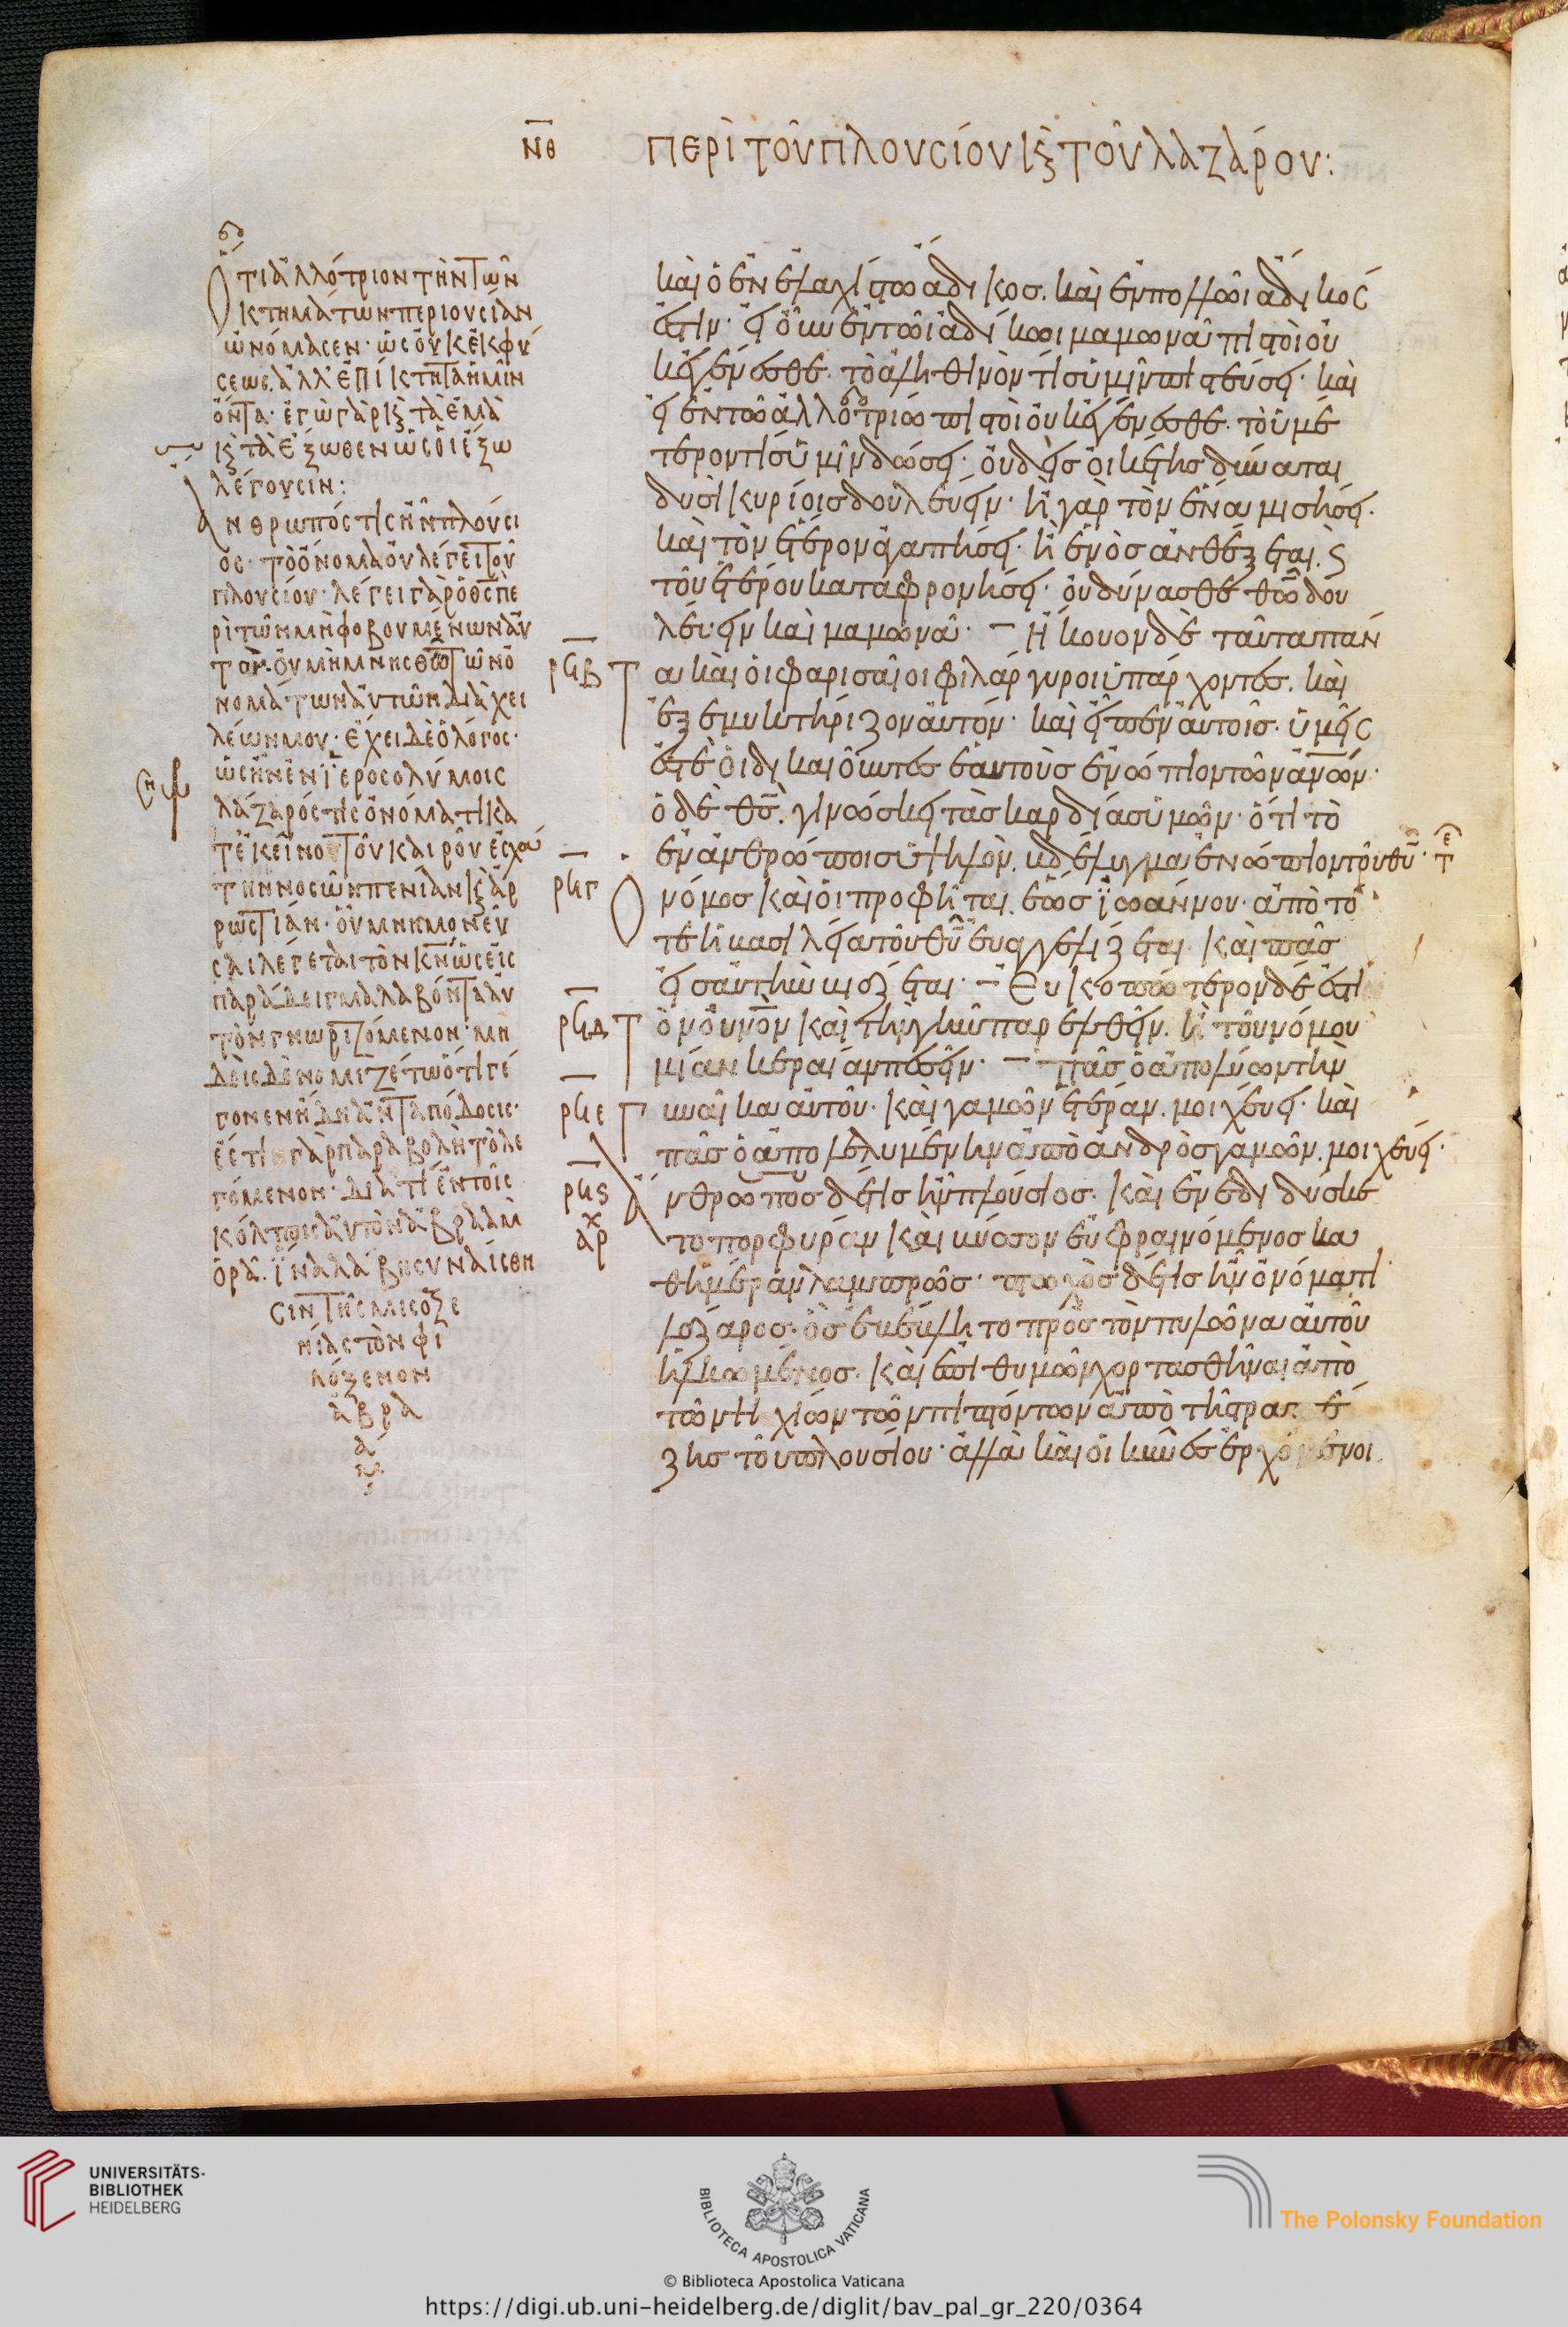 ΝΘ
ΠΕΡὶ ΤΟῦ ΠΛΟΥΣίΟΥ Κὶ ΤΟῦ ΛΑΖάΡΟΥ:
Ὅτι ἀλλότριον τὴν τῶν
κτημάτων περιουσίαν
ὠνόμασεν· ὡς οὐκ ἐκ φύ
σεως. ἀλλ' ἐπίκτητα ἡμῖν
ὄντα· ἐγὼ γὰρ κὶ τὰ ἐμὰ
κὶ τὰ ἔξωθεν ὡς οἱ ἔξω
λέγουσιν:
ἄνθρωπός τις ἦν πλούσι
ος· τὸ ὄνομα οὐ λέγει τοῦ
πλουσίου· λέγει γὰρ ὁ θς πε
ρὶ τῶν μὴ φοβουμένων αὐ
τόν· οὐ μὴ μνησθῶ τῶν ὀ
νομάτων αὐτῶν διὰ χει
λέων μου· ἔχει δὲ ὁ λόγος·
ὡς ἦν ἐν ἱεροσολύμοις
λάζαρός τις ὀνόματι κα
τ' ἐκεῖνο τοῦ καιροῦ ἐσχά
την νοσῶν πενίαν κὶ ἀρ
ρωστίαν· οὗ μνημονεῦ
σαι λέγεται τὸν κν ὡς εἰς
παράδειγμα λαβόντα αὐ
τὸν γνωριζόμενον· μη
δεὶς δὲ νομιζέτω ὅτι γέ
γονεν ἤδη ἀνταπόδοσις·
ἔστι γὰρ παραβολὴ τὸ λε
γόμενον· διατί ἐν τοῖς
κόλποις αὐτὸν ἀβραὰμ
ὁρᾶ. ἵνα λάβῃ συναίσθη
σιν τῆς μισοξε
νίας τὸν φι
λόξενον
ἀβρα
ὰ
μ:
καὶ ὁ ἐν ἐλαχίστω ἄδικος. καὶ ἐν πολλῶι ἄδικός
ἐστιν· εἰ οὖν ἐν τῶι ἀδίκωι μαμωνᾶ πιστοὶ οὐ
κ ἐγένεσθε. τὸ ἀληθινὸν τίς ὑμῖν πιστεύσει· καὶ
εἰ ἐν τῶ ἀλλοτρίω πιστοὶ οὐκ ἐγένεσθε. τὸ ὑμέ
τερον τίς ὑμῖν δώσει· οὐδεὶς οἰκέτης δύναται
δυσὶ κυρίοις δουλεύειν· ἢ γὰρ τὸν ἕνα μισήσει.
καὶ τὸν ἕτερον ἀγαπήσει· ἢ ἑνὸς ἀνθέξεται. ϛ
τοῦ ἑτέρου καταφρονήσει· οὐ δύνασθε θῶ δου
λεύειν καὶ μαμωνᾶ· – Ἤκουον δὲ ταῦτα πάν
ρϟβ
τα καὶ οἱ φαρισαῖοι φιλάργυροι ὑπάρχοντες. καὶ
ἐξεμυκτήριζον αὐτόν· καὶ εἶπεν αὐτοῖς· ὑμεῖς
ἐστὲ οἱ δικαιοῦντες ἑαυτοὺς ἐνώπιον τῶν ανων·
ὁ δὲ θς. γινώσκει τὰς καρδίας ὑμῶν· ὅτι τὸ
ἐν ἀνθρώποις ὑψηλόν. βδέλυγμα ἐνώπιον τοῦ θυ·
ρϟγ
Ὁ νόμος καὶ οἱ προφῆται. ἕως ἰωάννου· ἀπὸ τό
τε ἡ βασιλεία τοῦ θυ εὐαγγελίζεται. καὶ πᾶς
εἰς αὐτὴν βιάζεται· – Εὐκοπώτερον δέ ἐστι
ρϟδ
τὸν οὐνον καὶ τὴν γῆν παρελθεῖν. ἢ τοῦ νόμου
μίαν κεραίαν πεσεῖν· – πᾶς ὁ ἀπολύων τὴν
ρϟε
γυναῖκα αὐτοῦ· καὶ γαμῶν ἑτέραν. μοιχεύει· καὶ
πᾶς ὁ ἀπολελυμένην ἀπὸ ἀνδρὸς γαμῶν. μοιχεύει·
ρϟϛ
ἀρχ
ἄνθρωπος δέ τις ἦν πλούσιος. καὶ ἐνεδιδύσκε
το πορφύραν καὶ βύσσον εὐφραινόμενος κα
θ' ἡμέραν λαμπρῶς· πτωχὸς δέ τις ἦν ὀνόματι
λάζαρος· ὃς ἐβέβλητο πρὸς τὸν πυλῶνα αὐτοῦ
ἡλκωμένος. καὶ ἐπιθυμῶν χορτασθῆναι ἀπὸ
τῶν ψιχίων τῶν πιπτόντων ἀπὸ τῆς τραπέ
ζης τοῦ πλουσίου· ἀλλὰ καὶ οἱ κύνες ἐρχόμενοι.
UNIVERSITÄTS-
BIBLIOTHEK
HEIDELBERG
BIBLIOTECA APOSTOLICA VATICANA
© Biblioteca Apostolica Vaticana
The Polonsky Foundation
https://digi.ub.uni-heidelberg.de/diglit/bav_pal_gr_220/0364